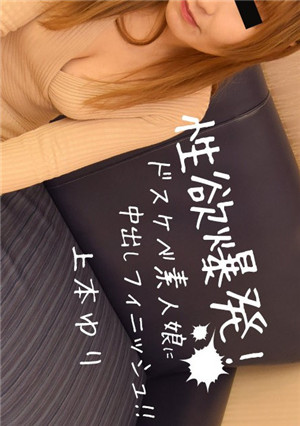 性欲爆発!
ドスケベ素人娘に
中出しフィニッシュ!!
上本ゆり